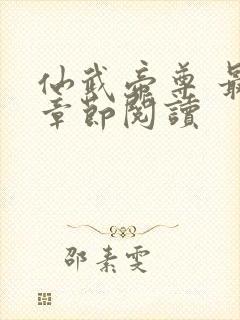 仙武帝尊 最
章節閱讀
邵素雯